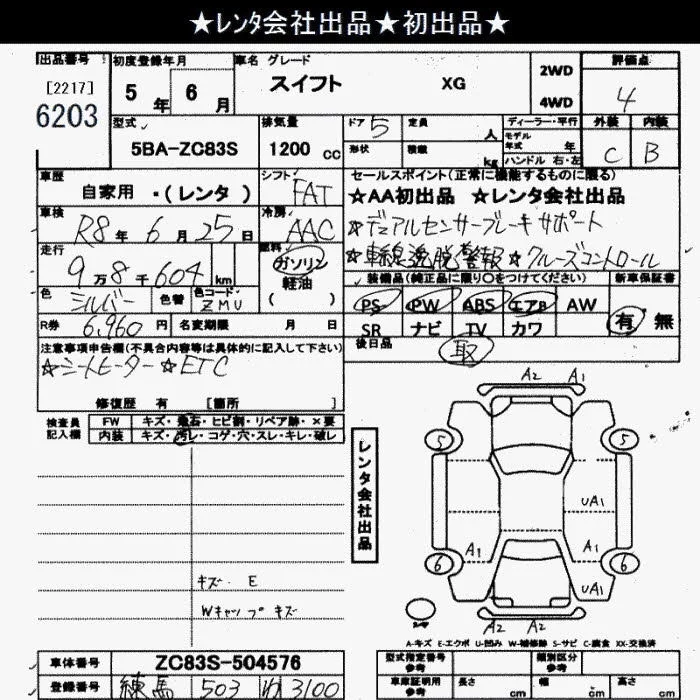 ★レンタ会社出品★初出品★
出品番号
[2217]
6203
初度登録年月
5年 6月
車名 グレード
スイフト XG
2WD
4WD
評価点
4
型式
5BA-ZC83S
排気量
1200 cc
ドア 5
形状
定員 人
積載 kg
ディーラー・平行
モデル年式 年
ハンドル 右・左
外装 C
内装 B
車歴
自家用 ・(レンタ)
シフト
FAT
セールスポイント(正常に機能するものに限る)
☆AA初出品 ☆レンタ会社出品
☆デュアルセンサーブレーキサポート
☆車線逸脱警報 ☆クルーズコントロール
車検
R8年 6月 25日
冷房
AAC
走行
9万8千604 km
燃料
ガソリン
軽油
( )
色
シルバー
色替
色コード
ZMU
装備品(純正品に限り○をつけてください)
PS PW ABS エアB AW
SR ナビ TV カワ
新車保証書
有 無
R券 6,960円
名変期限 月 日
後日品
取
注意事項申告欄(不具合内容等は具体的に記入して下さい)
☆シートヒーター ☆ETC
修復歴 有 [箇所 ]
検査員記入欄
FW キズ・飛石・ヒビ割・リペア跡・×要
内装 キズ・汚レ・コゲ・穴・スレ・キレ・破レ
レンタ会社出品
A2 A1
5 5
UA1
A1 A1
6 6
UA1
A2 A2
キズ・E
Wキャップキズ
A-キズ E-エクボ U-凹み W-補修跡 S-サビ C-腐食 XX-交換済
車体番号 ZC83S-504576
登録番号 練馬 503 わ 3100
型式指定番号
参考
類別区分
参考
車庫証明用
参考
長さ cm
幅 cm
高さ cm